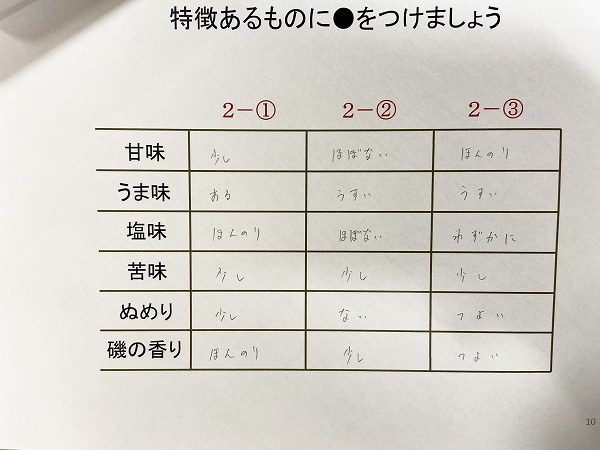 特徴あるものに●をつけましょう
2－① 2－② 2－③
甘味 少し ほぼない ほんのり
うま味 ある うすい うすい
塩味 ほんのり ほぼない わずかに
苦味 少し 少し 少し
ぬめり 少し ない つよい
磯の香り ほんのり 少し つよい
10